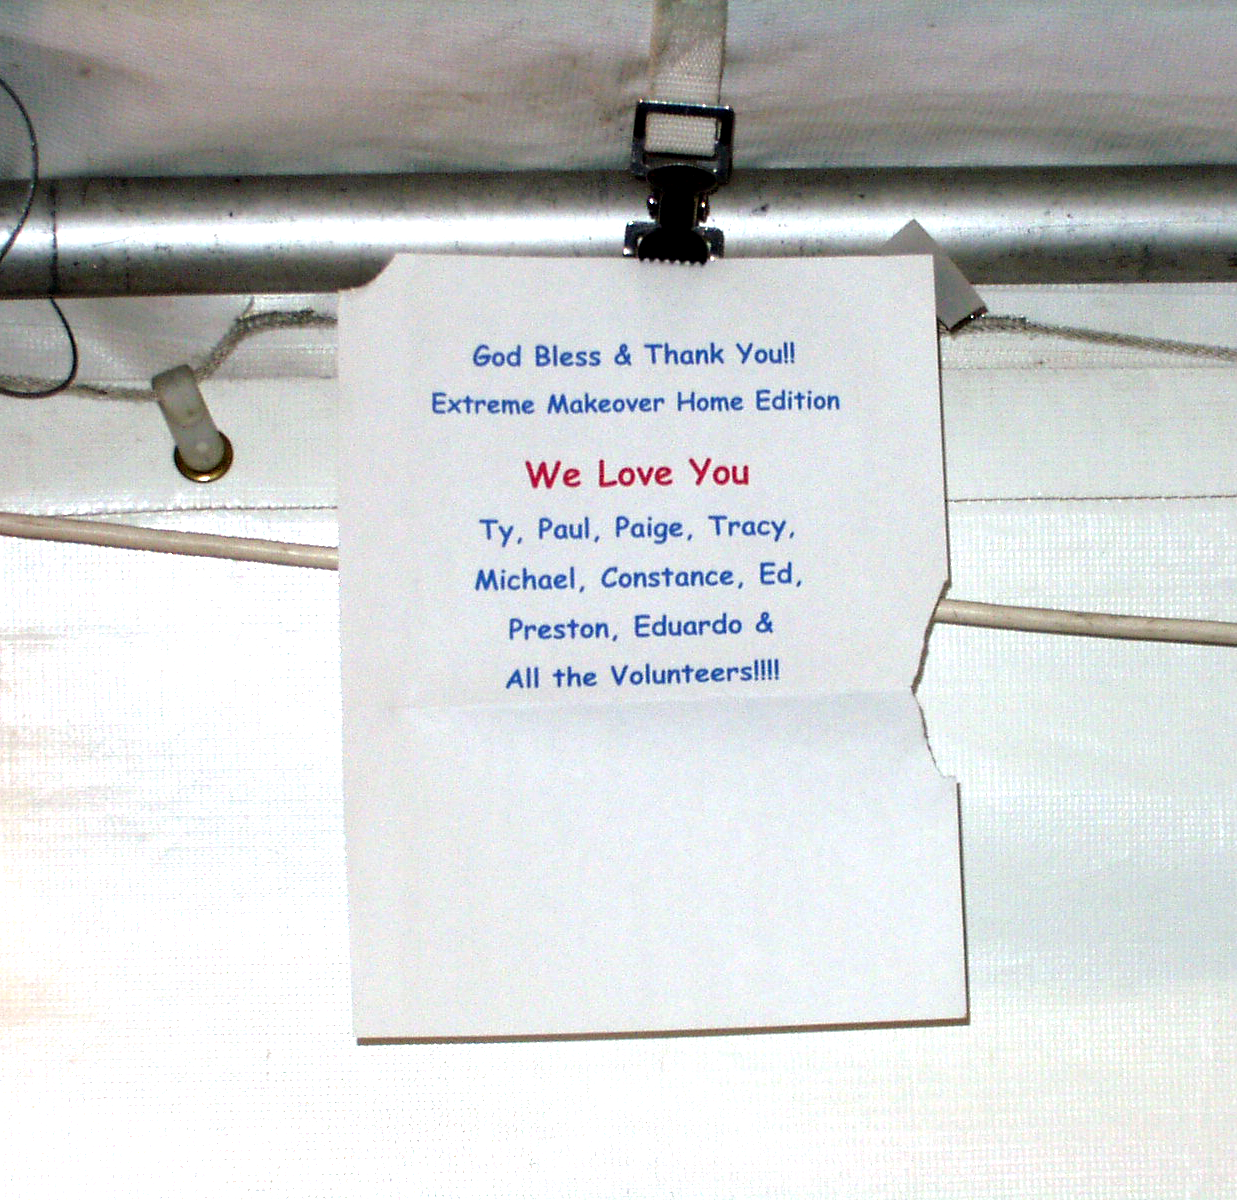 God Bless & Thank You!!
Extreme Makeover Home Edition
We Love You
Ty, Paul, Paige, Tracy,
Michael, Constance, Ed,
Preston, Eduardo &
All the Volunteers!!!!